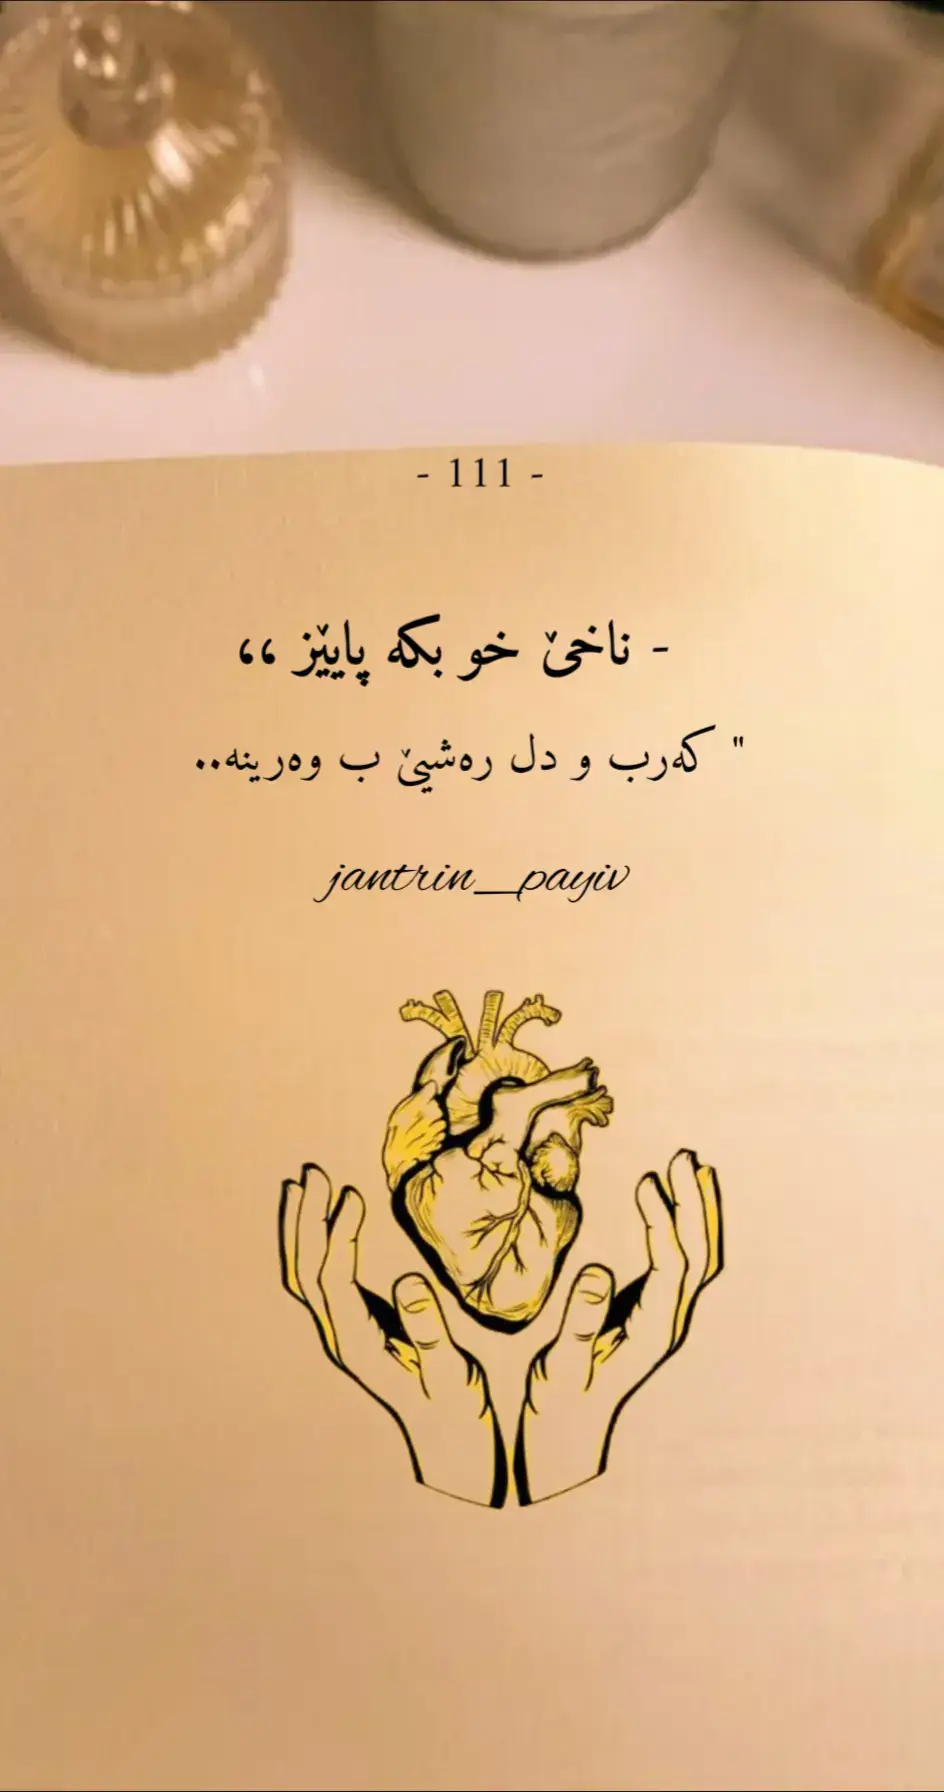 - 111 -
- ناخێ خو بکە پایێز ،،
" کەرب و دل رەشیێ ب وەرینە..
jantrin_payiv